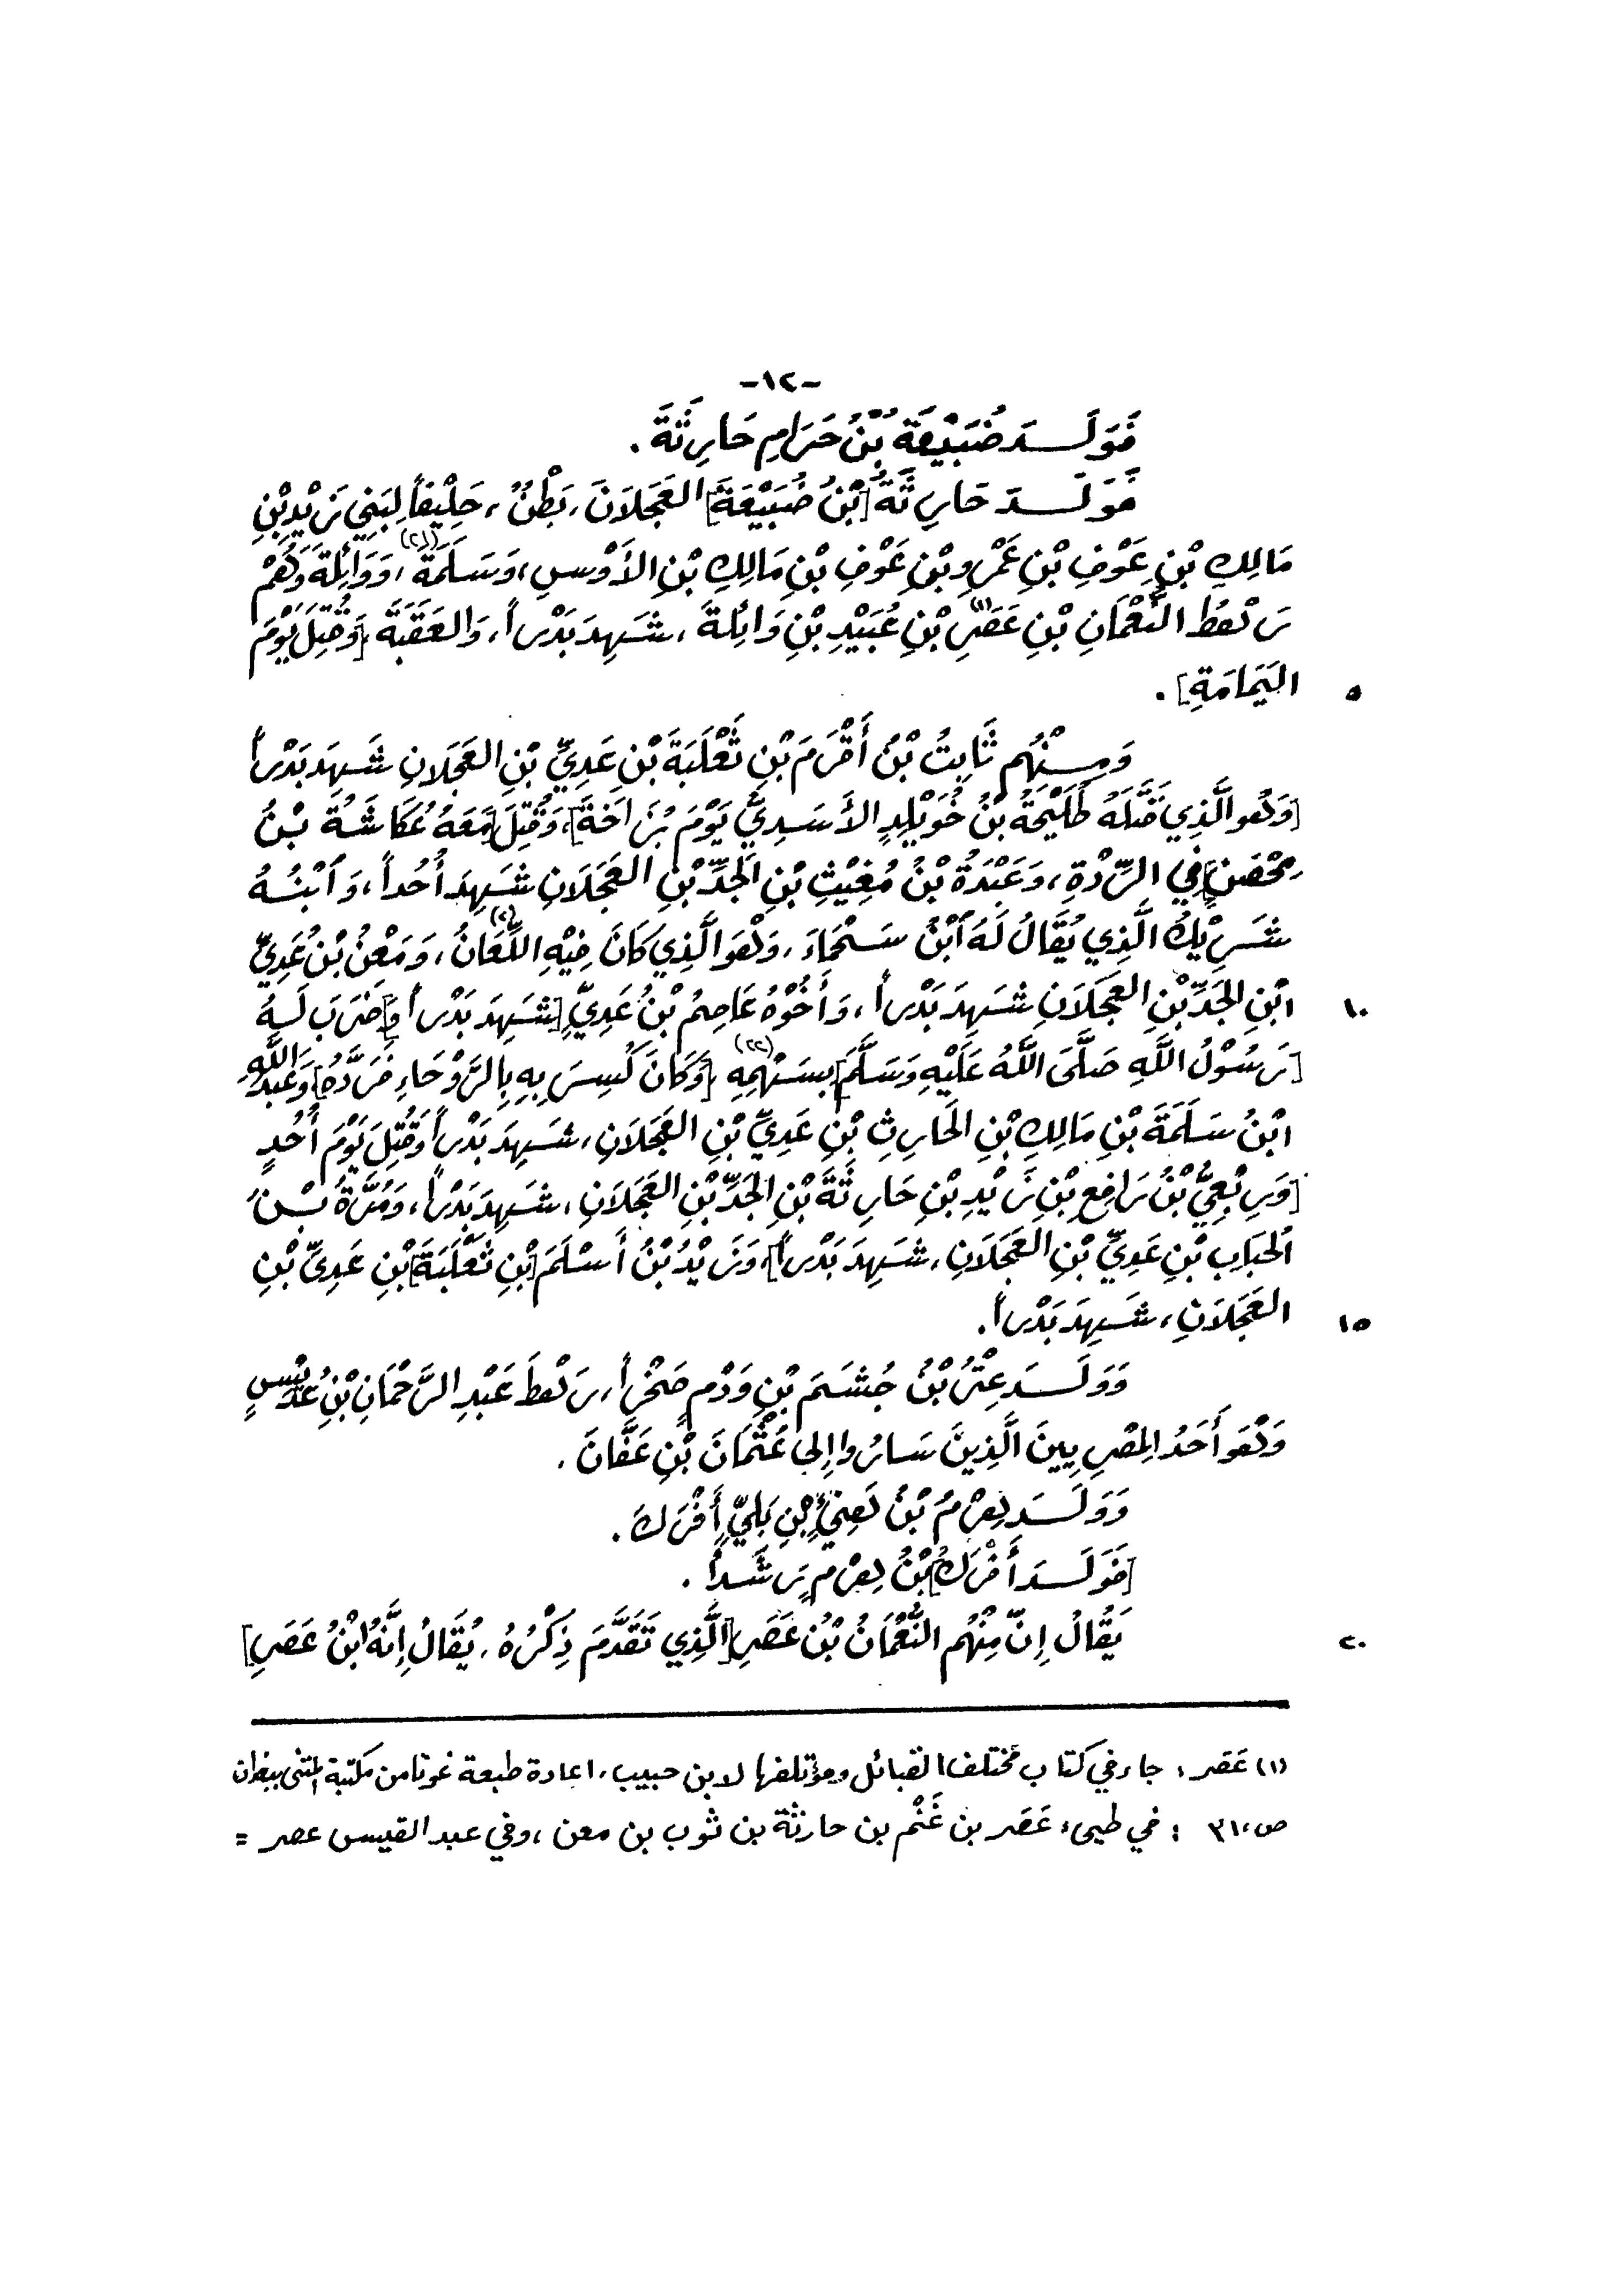 -١٢-
فَوَلَدَ ضُبَيْعَةُ بْنُ حَرَامِ حَارِثَةَ .
فَوَلَدَ حَارِثَةُ [بْنُ ضُبَيْعَةَ] العَجْلَانَ، بَطْنٌ، حَلِيْفاً لِبَنِي زَيْدِ بْنِ
مَالِكِ بْنِ عَوْفِ بْنِ عَمْرِو بْنِ عَوْفِ بْنِ مَالِكِ بْنِ الأَوْسِ، وَسَلَمَةَ (٢١)، وَوَائِلَةَ وَهُمْ
رَهْطُ النُّعْمَانِ بْنِ عَصَرِ (١) بْنِ عُبَيْدِ بْنِ وَائِلَةَ، شَهِدَ بَدْراً، وَالعَقَبَةَ، [وَقُتِلَ يَوْمَ
٥ اليَمَامَةِ] .
وَمِنْهُم ثَابِتُ بْنُ أَقْرَمَ بْنِ ثَعْلَبَةَ بْنِ عَدِيِّ بْنِ العَجْلَانِ شَهِدَ بَدْراً
[وَهُو الَّذِي قَتَلَهُ طُلَيْحَةُ بْنُ خُوَيْلِدٍ الأَسَدِيُّ يَوْمَ بُزَاخَةَ]، وَقُتِلَ [مَعَهُ عُكَاشَةُ بْنُ
مِحْصَنٍ] فِي الرِّدَّةِ، وَعَبْدَةُ بْنُ مُغِيْثِ بْنِ الجَدِّ بْنِ العَجْلَانِ شَهِدَ أُحُداً، وَٱبْنُهُ
شَرِيْكُ الَّذِي يُقَالُ لَهُ ٱبْنُ سَحْمَاءَ، وَهُوَ الَّذِي كَانَ فِيْهِ اللِّعَانُ (٢)، وَمَعْنُ بْنُ عَدِيِّ
١٠ ابْنِ الجَدِّ بْنِ العَجْلَانِ شَهِدَ بَدْراً، وَأَخُوْهُ عَاصِمُ بْنُ عَدِيٍّ [شَهِدَ بَدْراً وَ] ضَرَبَ لَهُ
[رَسُوْلُ اللَّهِ صَلَّى اللَّهُ عَلَيْهِ وَسَلَّمَ] بِسَهْمِهِ (٢٢) [وَكَانَ كُسِرَ بِهِ بِالرَّوْحَاءِ فَرَدَّهُ] وَعَبْدُ اللَّهِ
ابْنُ سَلَمَةَ بْنِ مَالِكِ بْنِ الحَارِثِ بْنِ عَدِيِّ بْنِ العَجْلَانِ، شَهِدَ بَدْراً وَقُتِلَ يَوْمَ أُحُدٍ
[وَرِبْعِيُّ بْنُ رَافِعِ بْنِ زَيْدِ بْنِ حَارِثَةَ بْنِ الجَدِّ بْنِ العَجْلَانِ، شَهِدَ بَدْراً، وَمُرَّةُ بْنُ
الحُبَابِ بْنِ عَدِيِّ بْنِ العَجْلَانِ، شَهِدَ بَدْراً]، وَزَيْدُ بْنُ أَسْلَمَ [بْنِ ثَعْلَبَةَ] بْنِ عَدِيِّ بْنِ
١٥ العَجْلَانِ، شَهِدَ بَدْراً.
وَوَلَدَ عِتْرُ بْنُ جُشَمَ بْنِ وَدْمٍ صَخْراً، رَهْطَ عَبْدِ الرَّحْمَانِ بْنِ عُدَيْسٍ
وَهُوَ أَحَدُ المِصْرِيينَ الَّذِينَ سَارُوا إِلى عُثْمَانَ بْنِ عَفَّانَ .
وَوَلَدَ هِرْمُ بْنُ هَنِيِّ بْنِ بَلِيٍّ أَفْرَكَ .
[فَوَلَدَ أَفْرَكُ] بْنُ هِرْمٍ رَشَداً .
٢٠ يُقَالُ إِنَّ مِنْهُم النُّعْمَانُ بْنُ عَصَرِ [الَّذِي تَقَدَّمَ ذِكْرُهُ، يُقَالُ إِنَّهُ ابْنُ عَصَرِ]
(١) عَصَر : جاء في كتاب مختلف القبائل ومؤتلفها لابن حبيب، اعادة طبعة غوتا من مكتبة المثنى ببغداد
ص، ٣١ : في طيىء عَصَر بن غَنْم بن حارثة بن ثوب بن معن ، وفي عبد القيس عصر =